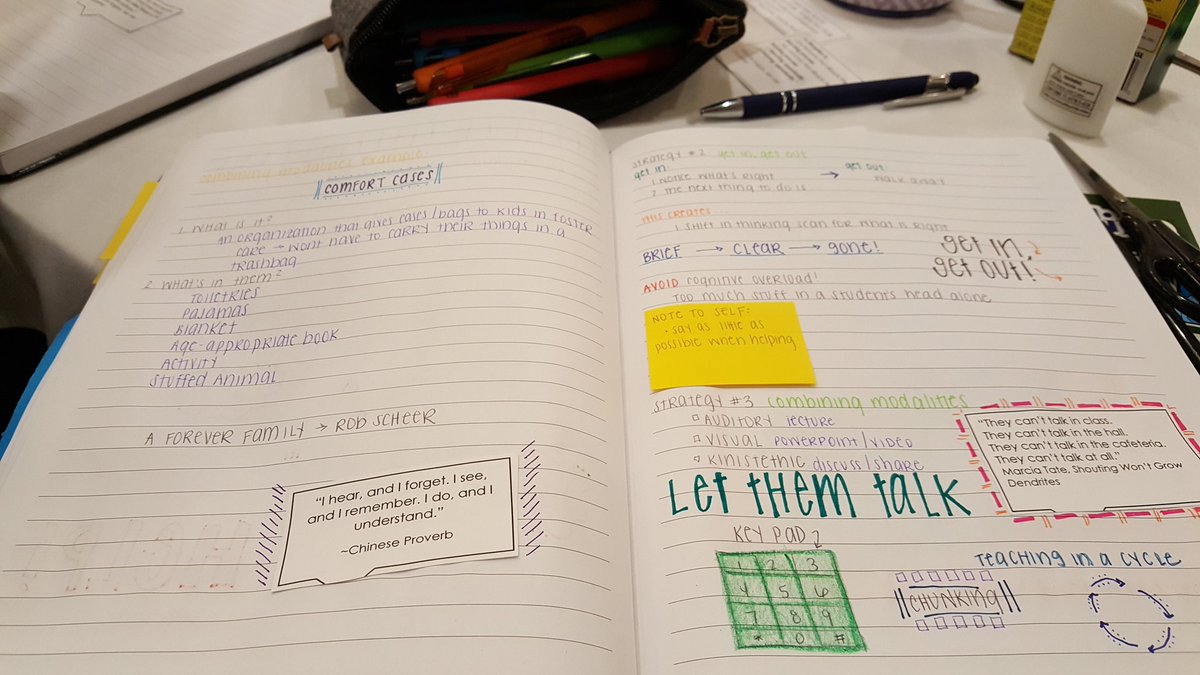 combining modalities example:
COMFORT CASES
1. What is it?
An organization that gives cases/bags to kids in foster
care → wont have to carry their things in a
trashbag
2. What's in them?
Toiletries
Pajamas
Blanket
Age-appropriate book
Activity
Stuffed Animal
A FOREVER FAMILY → ROB SCHEER
"I hear, and I forget. I see,
and I remember. I do, and I
understand."
~Chinese Proverb
STRATEGY #2 get in, get out
get in: get out
1. Notice what's right → walk away
2. The next thing to do is
This creates
1. shift in thinking scan for what is right
BRIEF → CLEAR → gone!
get in,
get out!
AVOID cognitive overload!
Too much stuff in a student's head alone
NOTE TO SELF:
• say as little as
possible when helping
STRATEGY #3 combining modalities
AUDITORY lecture
VISUAL powerpoint/video
KINISTETHIC discuss/share
LET THEM TALK
"They can't talk in class.
They can't talk in the hall.
They can't talk in the cafeteria.
They can't talk at all."
Marcia Tate, Shouting Won't Grow
Dendrites
KEY PAD
1 2 3
4 5 6
7 8 9
* 0 #
TEACHING IN A CYCLE
CHUNKING